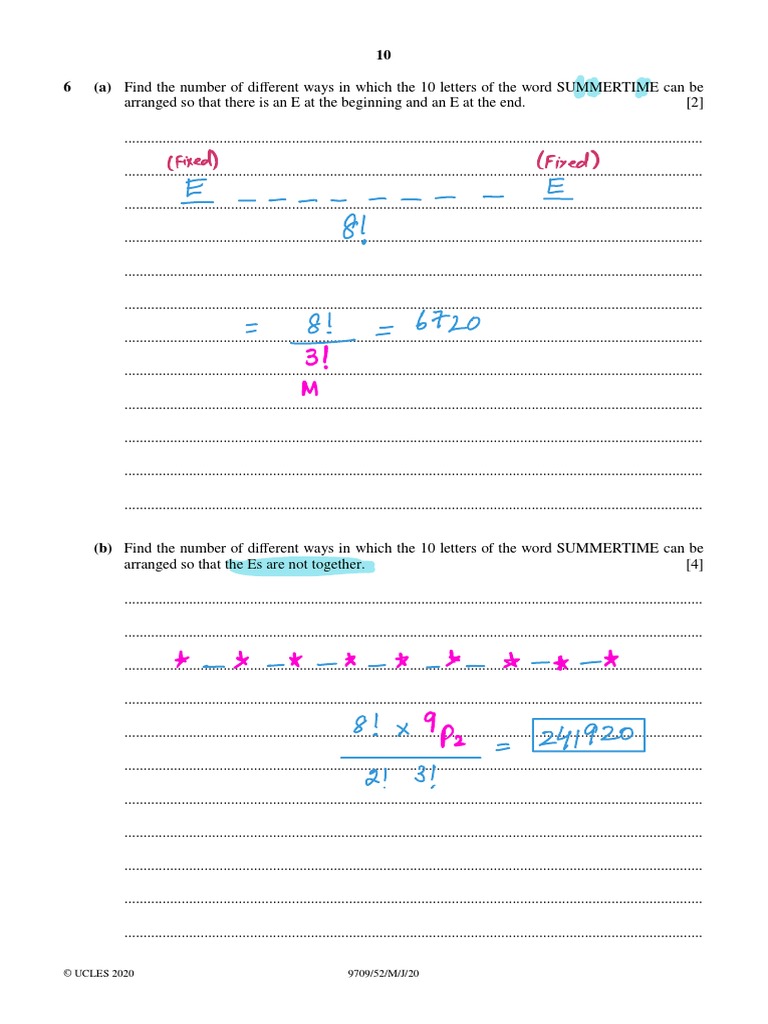 10
6 (a) Find the number of different ways in which the 10 letters of the word SUMMERTIME can be
arranged so that there is an E at the beginning and an E at the end. [2]
(Fixed) (Fixed)
E _ _ _ _ _ _ _ _ E
8!
= 8! = 6720
3!
M
(b) Find the number of different ways in which the 10 letters of the word SUMMERTIME can be
arranged so that the Es are not together. [4]
★ _ ★ _ ★ _ ★ _ ★ _ ★ _ ★ _ ★ _ ★
8! × 9P2 = 241920
2! 3!
© UCLES 2020 9709/52/M/J/20